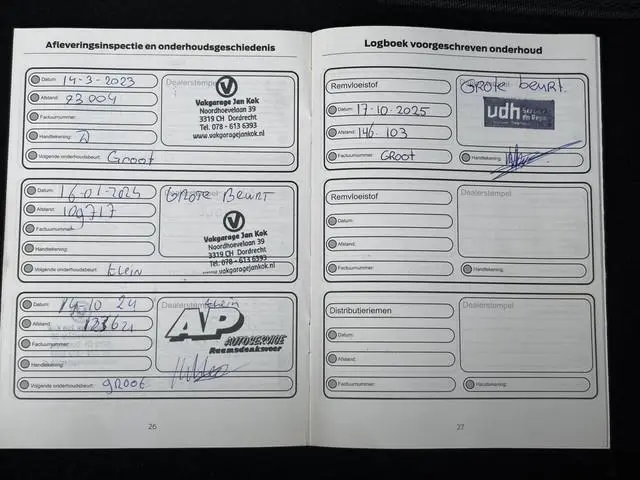 Afleveringsinspectie en onderhoudsgeschiedenis
Datum: 14-3-2023
Afstand: 93004
Factuurnummer:
Handtekening:
Volgende onderhoudsbeurt: Groot
Dealerstempel
Vakgarage Jan Kok
Noordhoevelaan 39
3319 CH Dordrecht
Tel. 078 - 613 6393
www.vakgaragejankok.nl
Datum: 16-01-2024
Afstand: 109717
Factuurnummer:
Handtekening:
Volgende onderhoudsbeurt: Klein
GROTE BEURT
Vakgarage Jan Kok
Noordhoevelaan 39
3319 CH Dordrecht
Tel. 078 - 613 6393
www.vakgaragejankok.nl
Datum: 14 10 24
Afstand: 123621
Factuurnummer:
Handtekening:
Volgende onderhoudsbeurt: groot
Dealerstempel klein
AP
AUTOSERVICE
Raamsdonksveer
26
Logboek voorgeschreven onderhoud
Remvloeistof
Datum: 17-10-2025
Afstand: 146.103
Factuurnummer: GROOT
GROTE beurt.
udh
Handtekening:
Remvloeistof
Datum:
Afstand:
Factuurnummer:
Dealerstempel
Handtekening:
Distributieriemen
Datum:
Afstand:
Factuurnummer:
Dealerstempel
Handtekening:
27